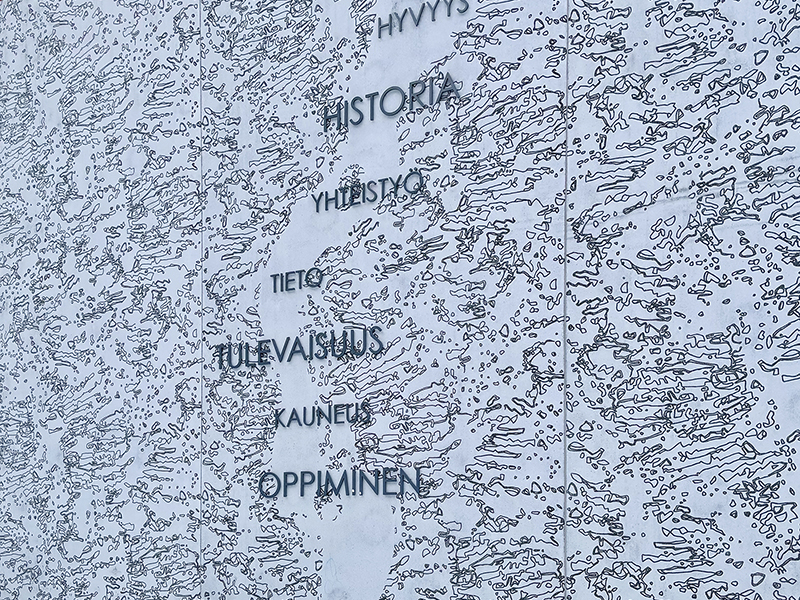 HYVYYS
HISTORIA
YHTEISTYÖ
TIETO
TULEVAISUUS
KAUNEUS
OPPIMINEN